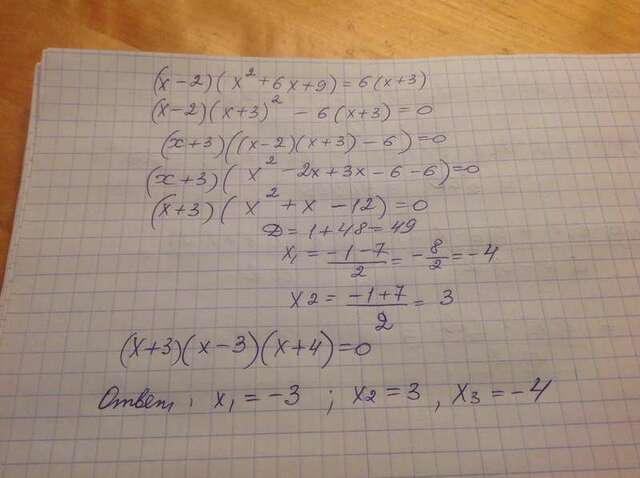 (x-2)(x²+6x+9)=6(x+3)
(x-2)(x+3)² - 6(x+3)=0
(x+3)((x-2)(x+3)-6)=0
(x+3)(x²-2x+3x-6-6)=0
(x+3)(x²+x-12)=0
D=1+48=49
x₁ = (-1-7)/2 = -8/2 = -4
x2 = (-1+7)/2 = 3
(x+3)(x-3)(x+4)=0
Ответ: x₁=-3; x₂=3, x₃=-4